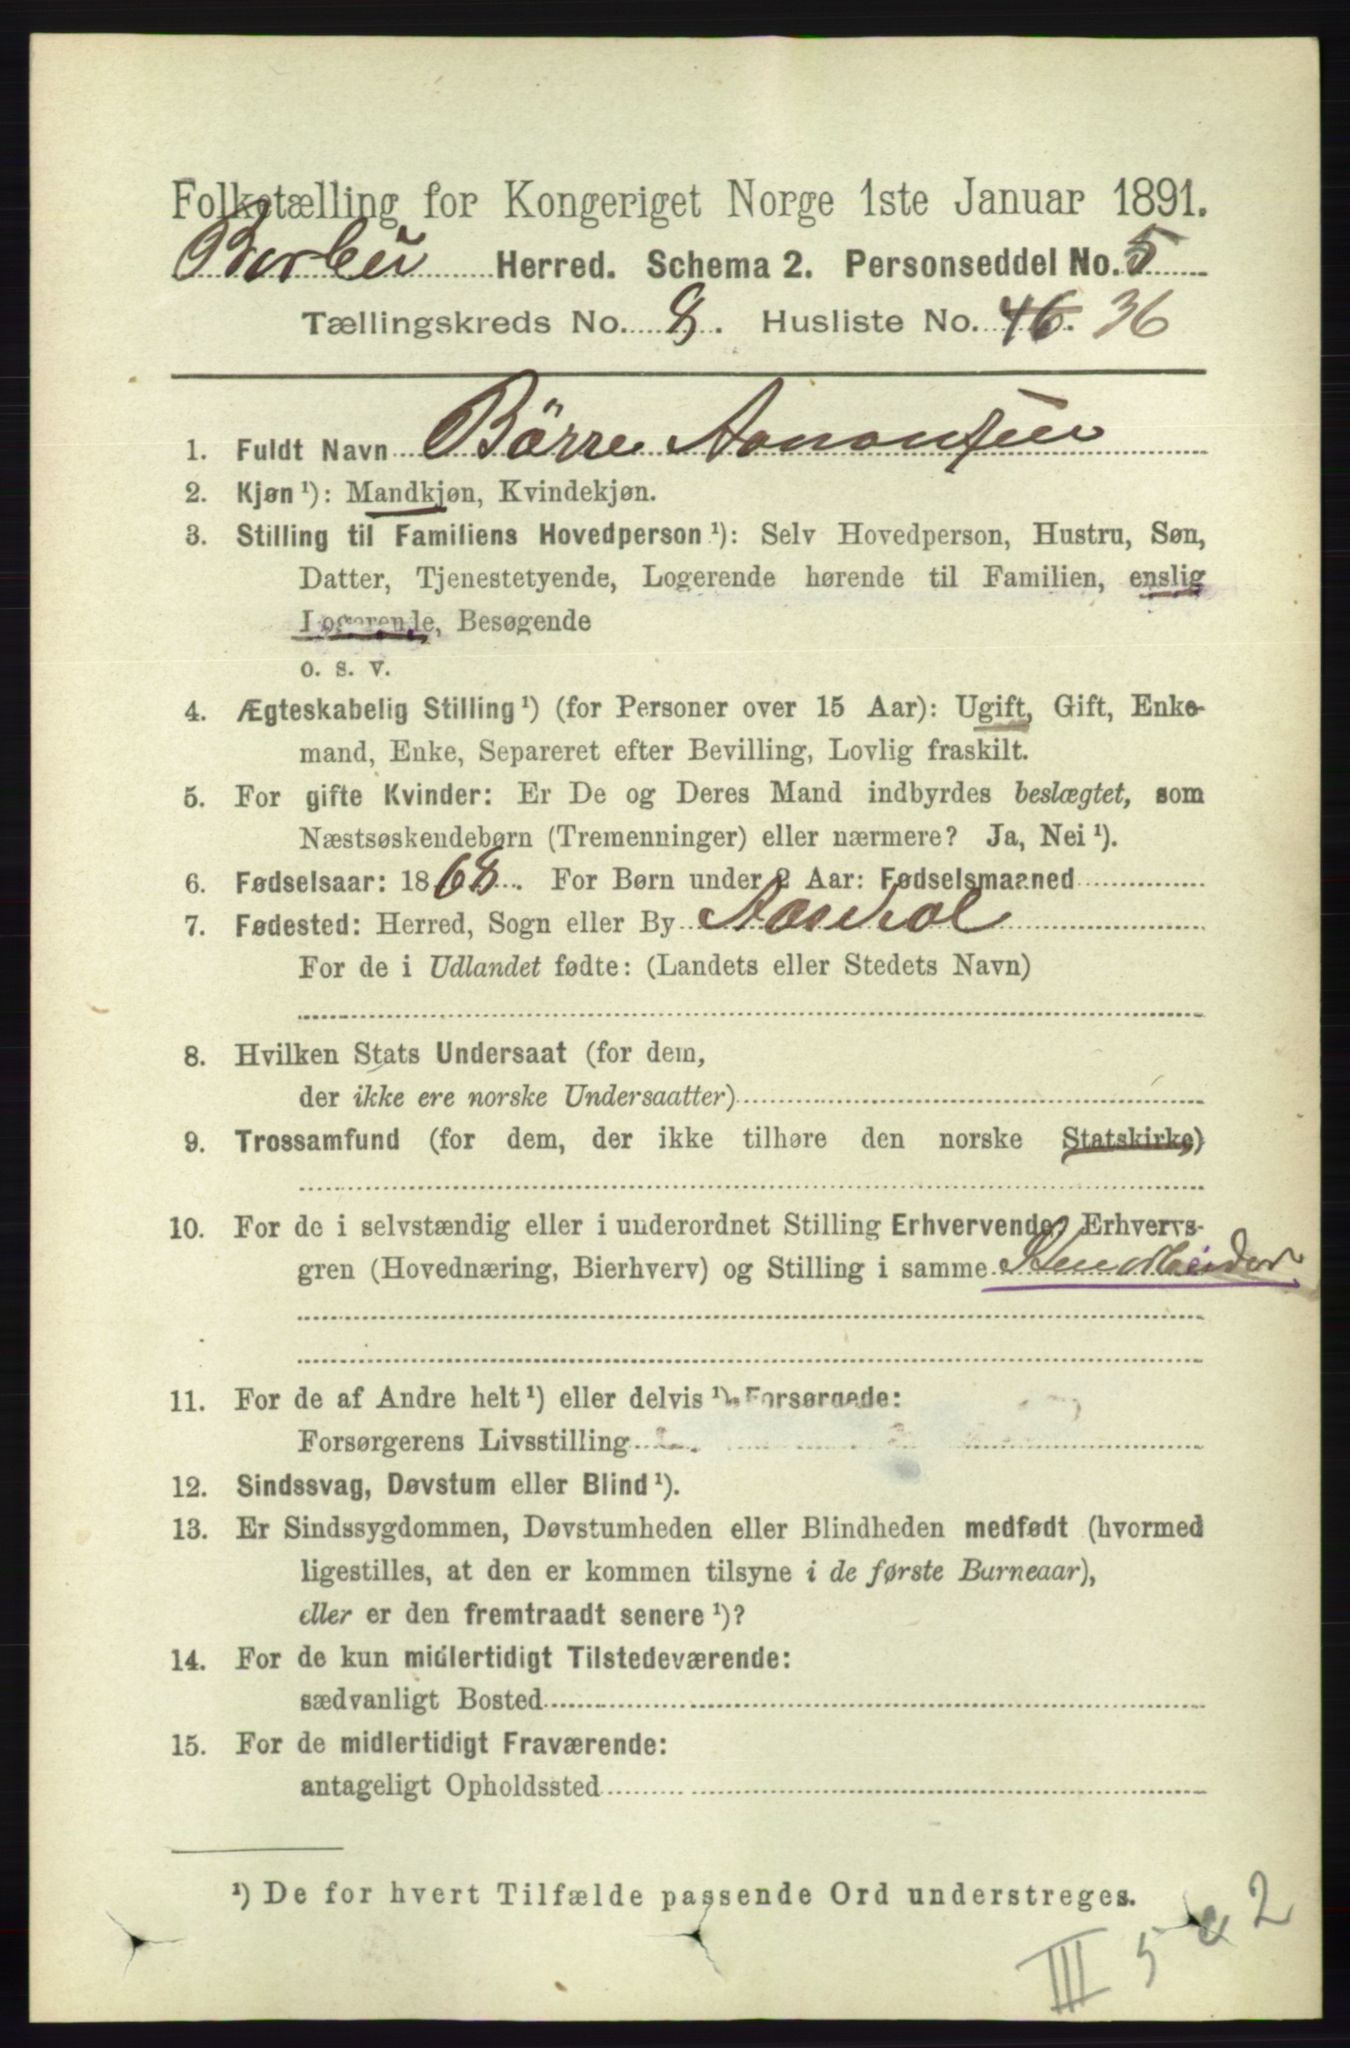 Folketælling for Kongeriget Norge 1ste Januar 1891.
Barbu Herred. Schema 2. Personseddel No. 5
Tællingskreds No. 8. Husliste No. 46. 36
1. Fuldt Navn Börre Aanonsen
2. Kjøn ¹): Mandkjøn, Kvindekjøn.
3. Stilling til Familiens Hovedperson ¹): Selv Hovedperson, Hustru, Søn,
Datter, Tjenestetyende, Logerende hørende til Familien, enslig
Logerende, Besøgende
o. s. v.
4. Ægteskabelig Stilling ¹) (for Personer over 15 Aar): Ugift, Gift, Enke-
mand, Enke, Separeret efter Bevilling, Lovlig fraskilt.
5. For gifte Kvinder: Er De og Deres Mand indbyrdes beslægtet, som
Næstsøskendebørn (Tremenninger) eller nærmere? Ja, Nei ¹).
6. Fødselsaar: 1868. For Børn under 2 Aar: Fødselsmaaned
7. Fødested: Herred, Sogn eller By Aaseral
For de i Udlandet fødte: (Landets eller Stedets Navn)
8. Hvilken Stats Undersaat (for dem,
der ikke ere norske Undersaatter)
9. Trossamfund (for dem, der ikke tilhøre den norske Statskirke)
10. For de i selvstændig eller i underordnet Stilling Erhvervende: Erhvervs-
gren (Hovednæring, Bierhverv) og Stilling i samme
11. For de af Andre helt ¹) eller delvis ¹) Forsørgede:
Forsørgerens Livsstilling
12. Sindssvag, Døvstum eller Blind ¹).
13. Er Sindssygdommen, Døvstumheden eller Blindheden medfødt (hvormed
ligestilles, at den er kommen tilsyne i de første Barneaar),
eller er den fremtraadt senere ¹)?
14. For de kun midlertidigt Tilstedeværende:
sædvanligt Bosted
15. For de midlertidigt Fraværende:
antageligt Opholdssted
¹) De for hvert Tilfælde passende Ord understreges.
III 5 a 2